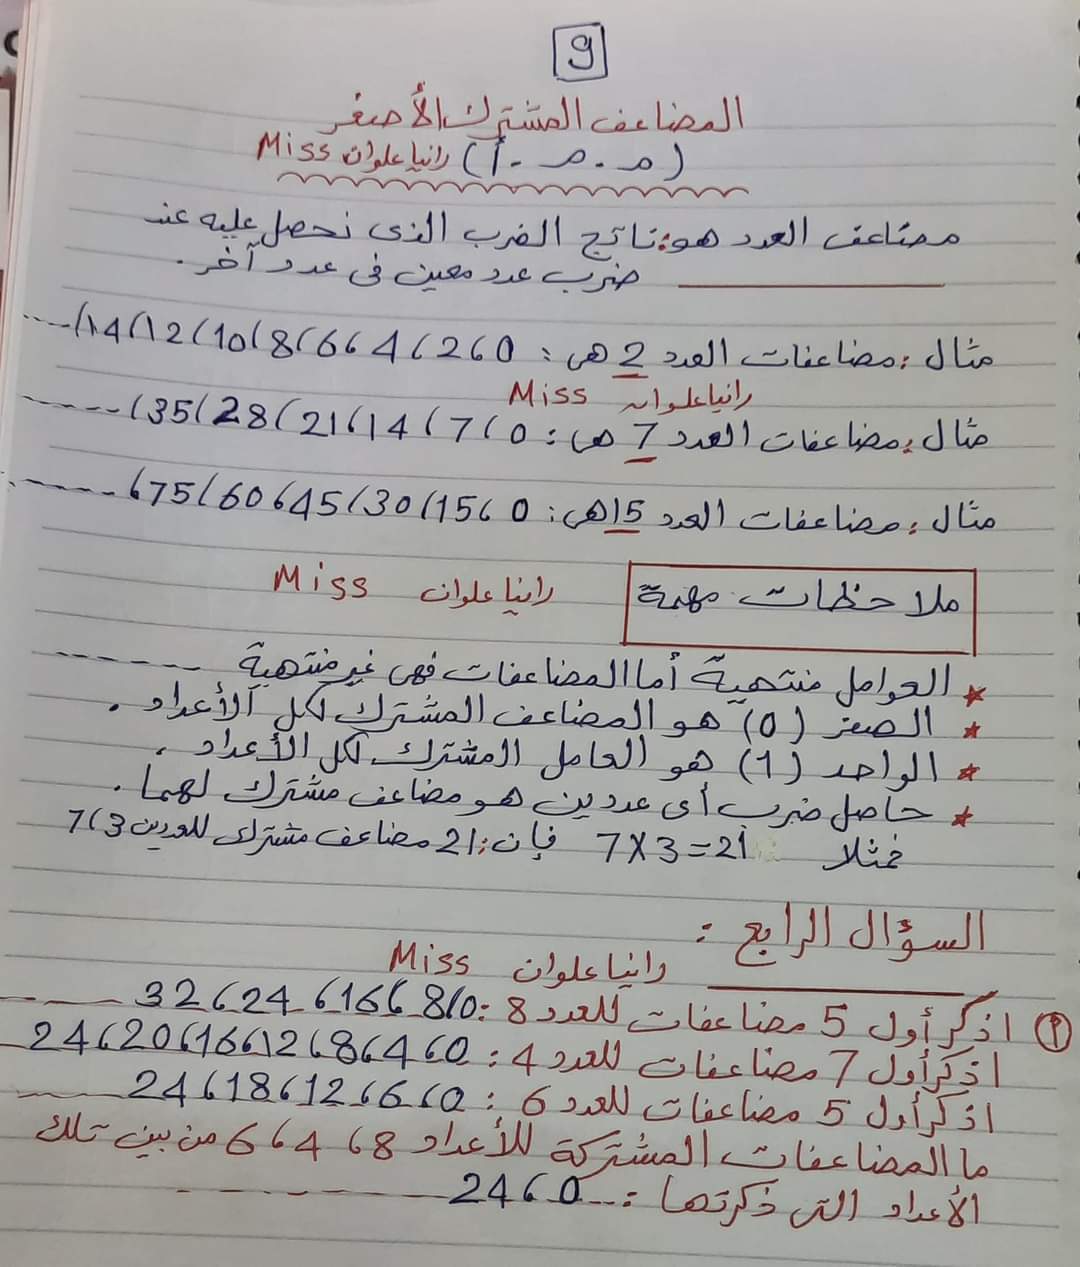 9
المضاعف المشترك الأصغر
(م.م.أ) رانيا علوان Miss
مضاعف العدد هو: ناتج الضرب الذى نحصل عليه عند
ضرب عدد معين فى عدد آخر.
مثال: مضاعفات العدد 2 هى: 0، 2، 4، 6، 8، 10، 12، 14، -----
رانيا علوان Miss
مثال: مضاعفات العدد 7 هى: 0، 7، 14، 21، 28، 35، -----
مثال: مضاعفات العدد 15 هى: 0، 15، 30، 45، 60، 75، -----
ملاحظات مهمة
رانيا علوان Miss
* العوامل منتهية أما المضاعفات فهى غير منتهية -----
* الصفر (0) هو المضاعف المشترك لكل الأعداد.
* الواحد (1) هو العامل المشترك لكل الأعداد.
* حاصل ضرب أى عددين هو مضاعف مشترك لهما.
فمثلا 7×3=21 فإن: 21 مضاعف مشترك للعددين 3، 7
السؤال الرابع:
رانيا علوان Miss
(أ) اذكر أول 5 مضاعفات للعدد 8: 0، 8، 16، 24، 32
اذكر أول 7 مضاعفات للعدد 4: 0، 4، 8، 12، 16، 20، 24
اذكر أول 5 مضاعفات للعدد 6: 0، 6، 12، 18، 24
ما المضاعفات المشتركة للأعداد 8، 4، 6 من بين تلك
الأعداد التى ذكرتها: 0، 24